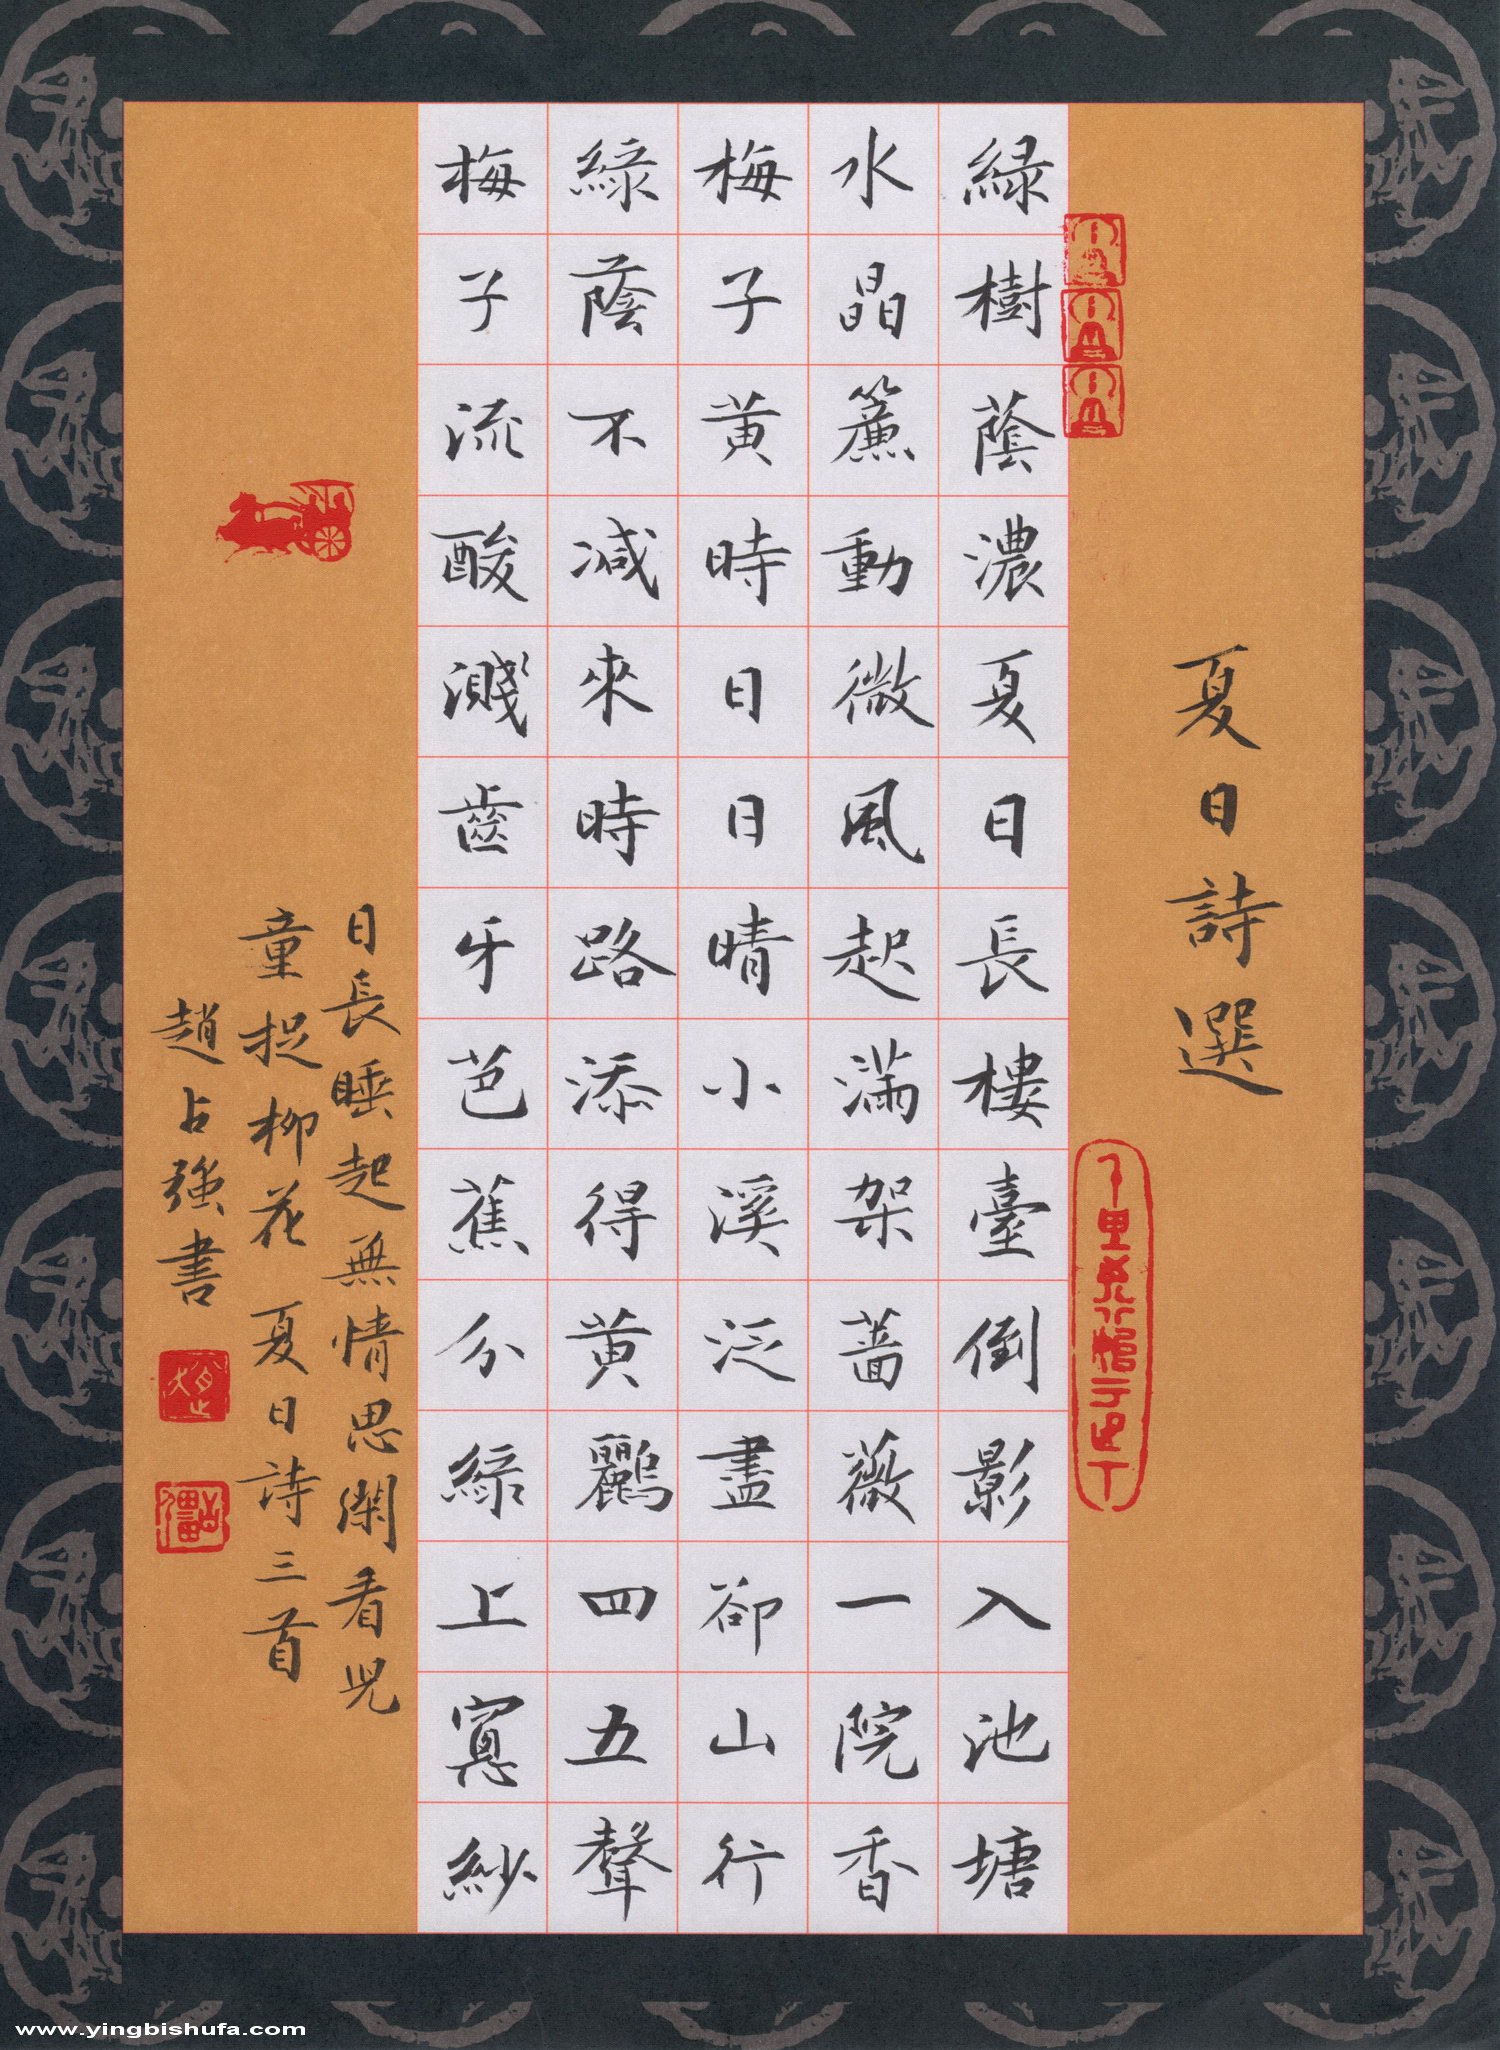 夏日詩選
綠樹蔭濃夏日長樓臺倒影入池塘
水晶簾動微風起滿架薔薇一院香
梅子黃時日日晴小溪泛盡卻山行
綠蔭不減來時路添得黃鸝四五聲
梅子流酸濺齒牙芭蕉分綠上窗紗
日長睡起無情思閑看兒
童捉柳花 夏日詩三首
趙占強書
www.yingbishufa.com